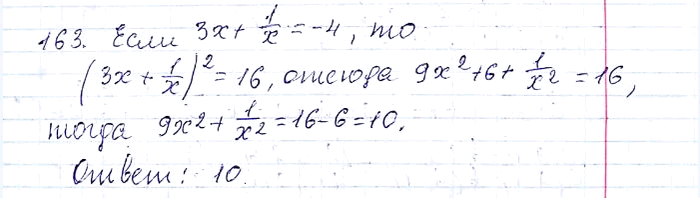 163. Если 3x + 1/x = -4, то
(3x + 1/x)² = 16, отсюда 9x² + 6 + 1/x² = 16,
тогда 9x² + 1/x² = 16 - 6 = 10.
Ответ: 10.